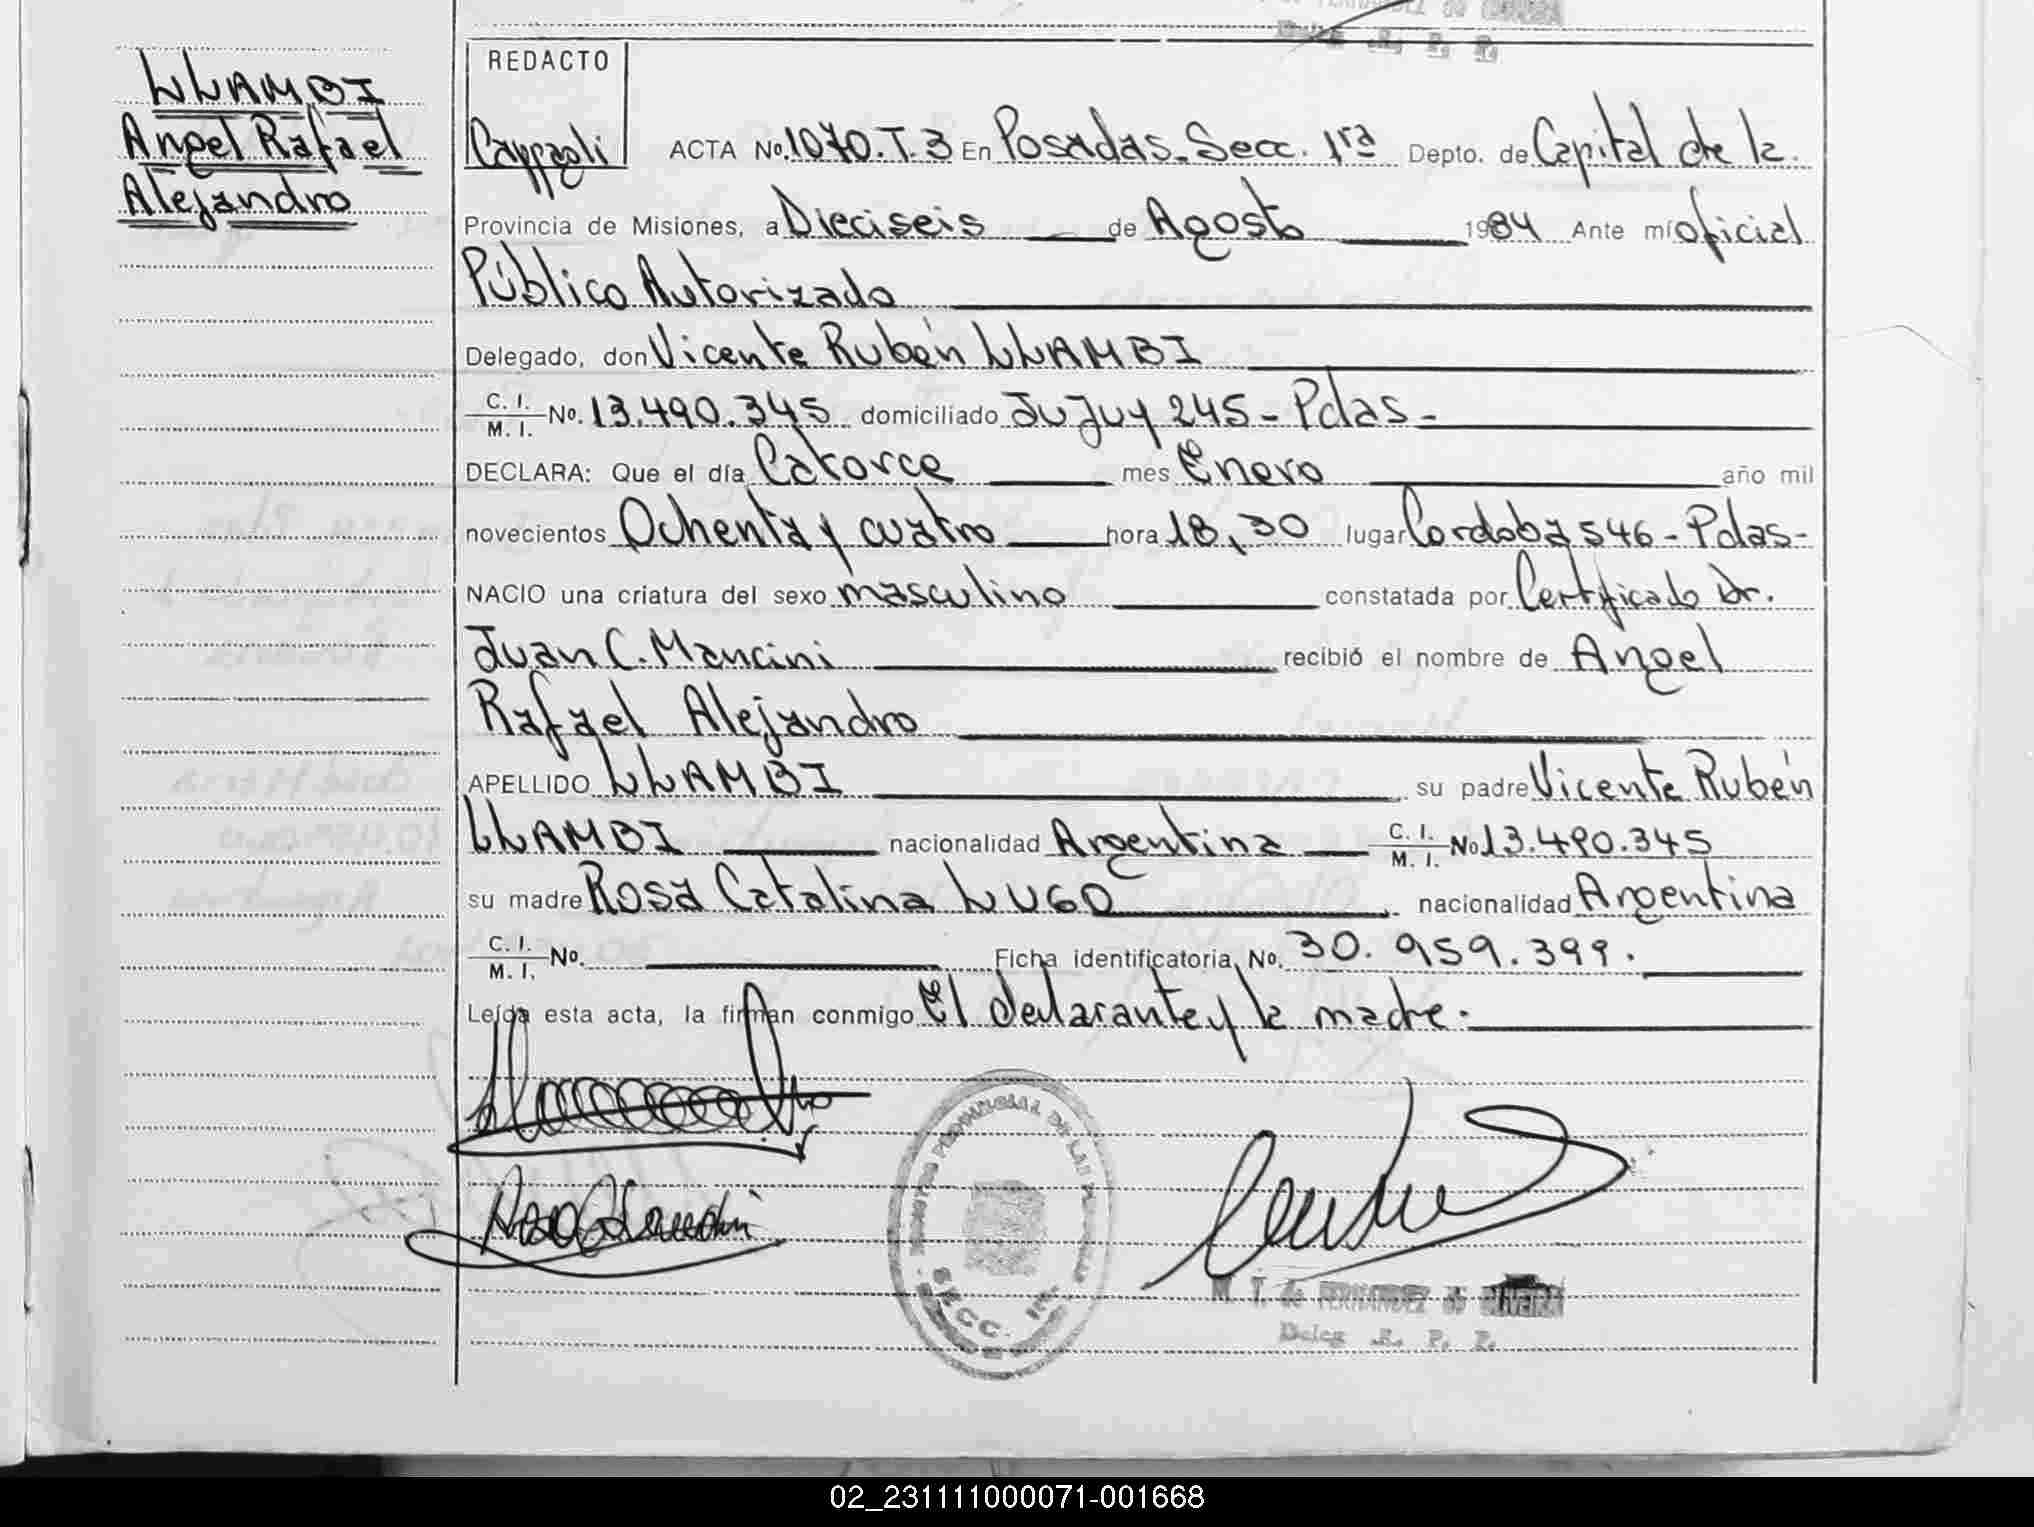 LLAMBI
Angel Rafael
Alejandro
REDACTO
Cappagli
ACTA No. 1070.T.3 En Posadas. Secc. 1ra Depto. de Capital de la
Provincia de Misiones, a Dieciseis de Agosto 1984 Ante mí oficial
Público Autorizado
Delegado, don Vicente Rubén LLAMBI
C. I. / M. I. No. 13.490.345 domiciliado Jujuy 245 - Pdas -
DECLARA: Que el día Catorce mes Enero año mil
novecientos Ochenta y cuatro hora 18,30 lugar Cordoba 546 - Pdas -
NACIO una criatura del sexo masculino constatada por Certificado Dr.
Juan C. Mancini recibió el nombre de Angel
Rafael Alejandro
APELLIDO LLAMBI su padre Vicente Rubén
LLAMBI nacionalidad Argentina C. I. / M. I. No 13.490.345
su madre Rosa Catalina LUGO nacionalidad Argentina
C. I. / M. I. No. Ficha identificatoria, No. 30.959.399.
Leída esta acta, la firman conmigo El declarante y la madre.
REGISTRO PROVINCIAL DE LAS PERSONAS
SECC. 1ra.
M. T. de FERNANDEZ de OLIVEIRA
Deleg. R. P. P.
02_231111000071-001668